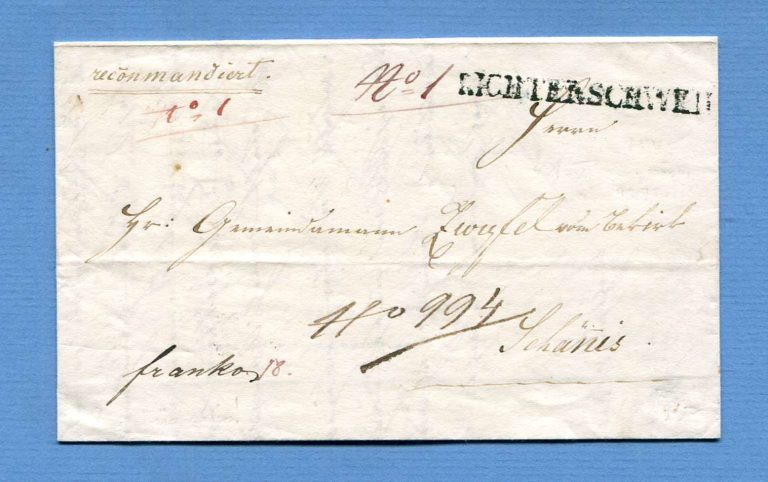 recōmmandiert.
No 1
No 1
RICHTERSCHWEIL
Herrn
Hr: Gemeindamann Zweifel vom Bezirk
No 994
Schänis.
franko 18.